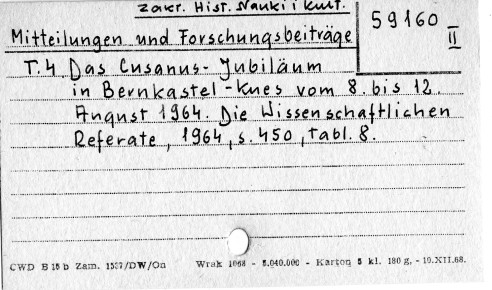 Zakr. Hist. Nauki i Kult.
59160
II
Mitteilungen und Forschungsbeiträge
T.4. Das Cusanus-Jubiläum
in Bernkastel-Kues vom 8. bis 12.
August 1964. Die Wissenschaftlichen
Referate, 1964, s. 450, tabl. 8.
CWD B 15 b Zam. 1537/DW/On Wrak 1068 - 5.040.000 - Karton 5 kl. 180 g. - 19.XII.68.